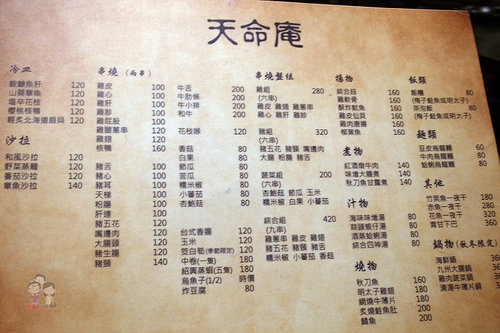 天命庵
冷皿
鮟鱇魚肝 120
山葵章魚 120
塩辛花枝 120
櫻桃核鴨 120
輕炙北海道扇貝 120
沙拉
和風沙拉 120
野菜蒸籠 120
番茄沙拉 120
章魚沙拉 140
串燒 (兩串)
雞皮 100
雞心 100
雞肝 100
雞胗 100
雞屁股 100
雞腿蔥串 120
雞翅 120
核鴨 160
豬舌 120
豬心 120
豬耳 120
天梯 100
粉腸 100
肝連 100
豬五花 120
嘴邊肉 120
大腸頭 120
豬生腸 120
豬頸 140
牛舌 200
牛肋條 200
牛小排 200
和牛 200
花枝線 120
香菇 80
白果 80
節瓜 80
苦瓜 80
糯米椒 80
小蕃茄 80
杏鮑菇 80
台式香腸 120
玉米 120
筊白筍(季節限定) 120
中卷(一隻) 180
紹興蒸蝦(五隻) 180
烏魚子(1/2) 時價
炸豆腐 80
串燒盤組
雞組 280
(六串)
雞皮 雞翅 雞蔥串
雞心 雞肝 雞胗
豬組 320
(六串)
豬五花 豬頸 嘴邊肉
大腸 粉腸 豬舌
蔬菜組 200
(六串)
杏鮑菇 節瓜 玉米
糯米椒 白果 小蕃茄
綜合組 420
(九串)
雞蔥串 雞皮 雞翅
豬五花 豬頸 豬舌
糯米椒 小蕃茄 香菇
揚物
綜合菇 160
雞軟骨 160
酥炸魷魚 160
雞皮仙貝 160
雞肉唐揚 160
柳葉魚 160
煮物
紅酒燉牛肉 140
味增大腸煮 140
秋刀魚甘露煮 140
汁物
海味味增湯 80
苦瓜雞湯 80
酒蒸蛤蜊湯 80
綜合四神湯 80
燒物
秋刀魚 160
明太子雞翅 180
網燒牛薄片 180
炙燒鮭魚肚 200
鯖魚 200
飯類
飯糰 80
(梅子鮭魚或明太子)
茶泡飯 80
(梅子鮭魚或明太子)
麵類
豆皮烏龍麵 60
牛肉烏龍麵 80
蛤蜊烏龍麵 80
其他
竹筴魚一夜干 180
赤魚一夜干 280
花魚一夜干 320
青甘下巴 360
鍋物 (秋冬限定)
海鮮鍋
九州大腸鍋
雞肉蔬菜鍋
清湯牛腸鍋